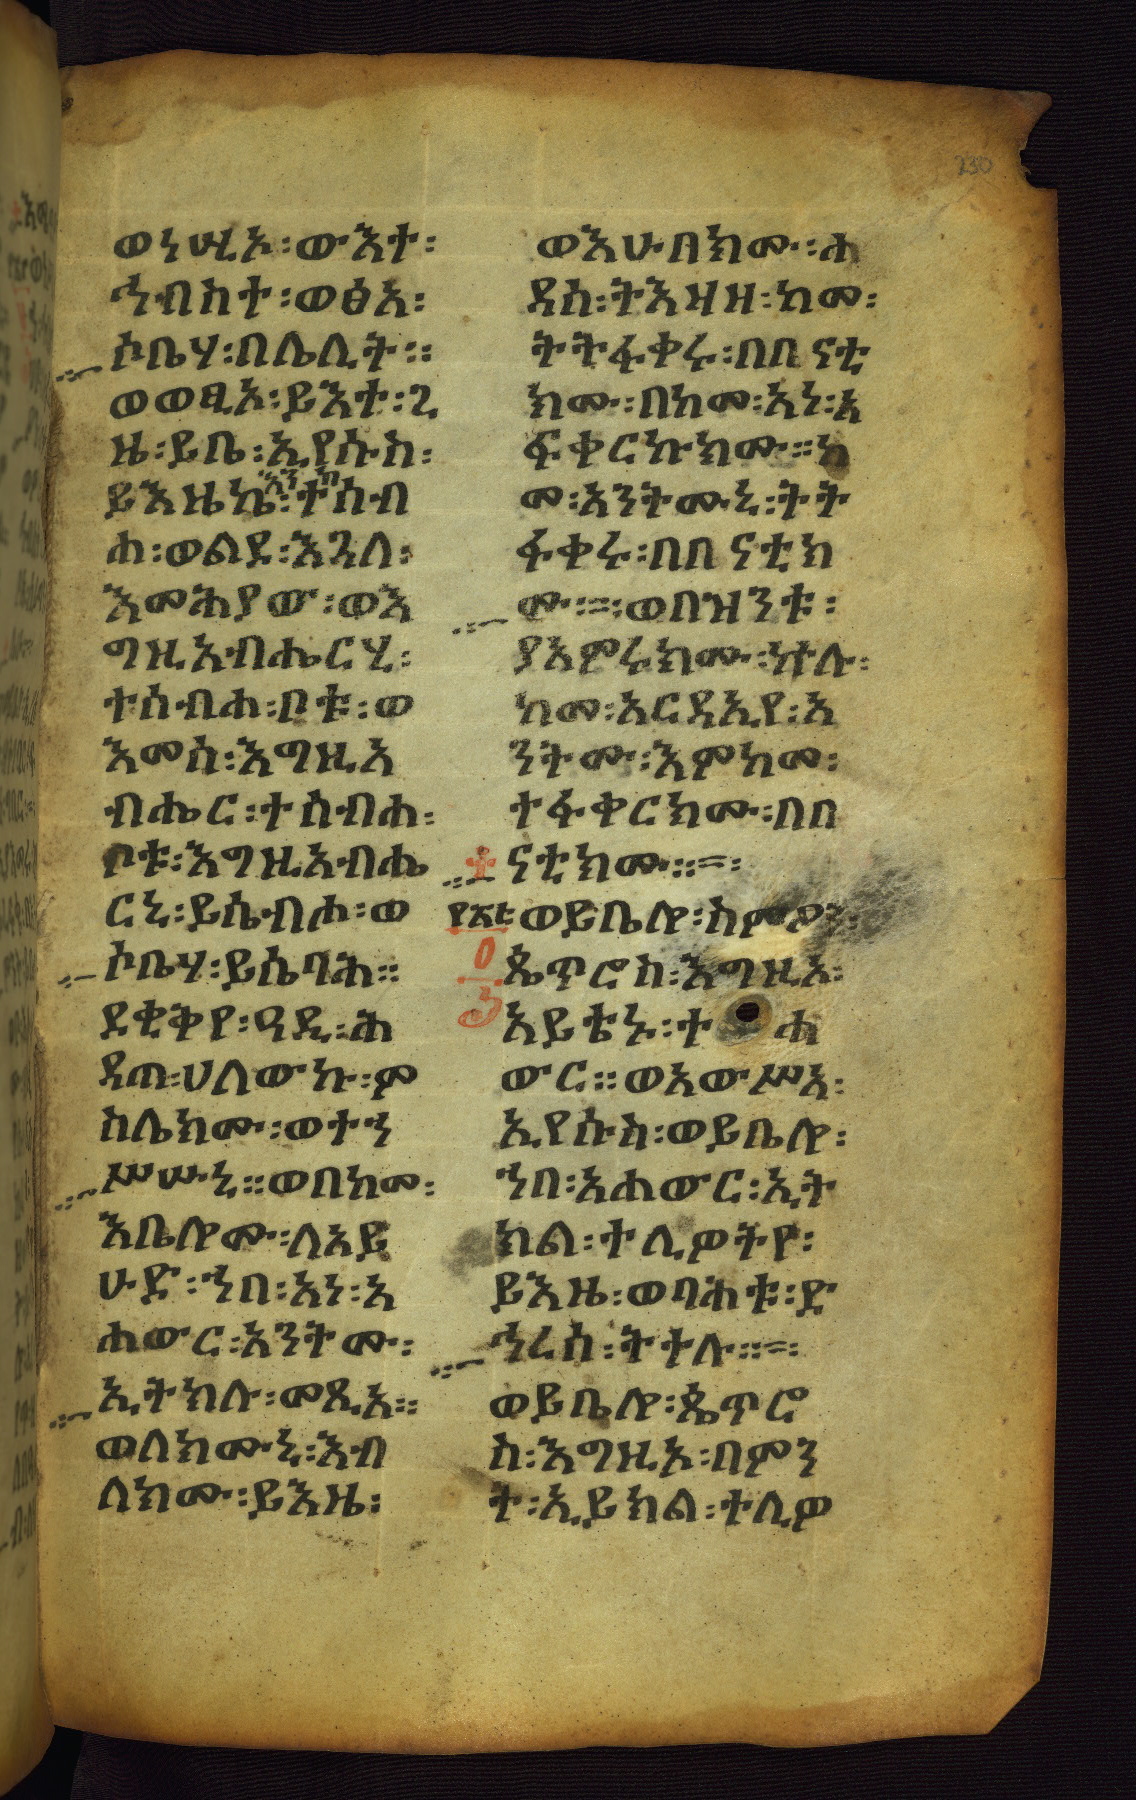 230
ወነሢኦ፡ውእተ፡
ኅብስተ፡ወፅአ፡
ሶቤሃ፡በሌሊት፡፡
ወወፂኦ፡ይእተ፡ጊ
ዜ፡ይቤ፡ኢየሱስ፡
እንከ
ይእዜኬ፡ተሰብ
ሐ፡ወልደ፡እጓለ፡
እመሕያው፡ወእ
ግዚአብሔርሂ፡
ተሰብሐ፡ቦቱ፡ወ
እመሰ፡እግዚአ
ብሔር፡ተሰብሐ፡
ቦቱ፡እግዚአብሔ
ርኒ፡ይሴብሖ፡ወ
ሶቤሃ፡ይሴባሕ፡፡
ደቂቅየ፡ዓዲ፡ሕ
ዳጠ፡ሀለውኩ፡ም
ስሌክሙ፡ወተኀ
ሥሡኒ፡፡ወበከመ፡
እቤሎሙ፡ለአይ
ሁድ፡ኀበ፡አነ፡አ
ሐውር፡አንትሙ፡
ኢትክሉ፡መጺአ፡፡
ወለክሙኒ፡እብ
ለክሙ፡ይእዜ፡
ወእሁበክሙ፡ሐ
ዳሰ፡ትእዛዘ፡ከመ፡
ትትፋቀሩ፡በበናቲ
ክሙ፡በከመ፡አነ፡አ
ፍቀርኩክሙ፡፡ከ
መ፡አንትሙኒ፡ትት
ፋቀሩ፡በበናቲክ
ሙ፡፡=፡ወበዝንቱ፡
ያአምሩክሙ፡ኵሉ፡
ከመ፡አርዳኢየ፡አ
ንትሙ፡እምከመ፡
ተፋቀርክሙ፡በበ
ናቲክሙ፡፡=፡
ወይቤሎ፡ስምዖን፡
ጴጥሮስ፡እግዚኦ፡
አይቴኑ፡ተሐ
ውር፡፡ወአውሥአ፡
ኢየሱስ፡ወይቤሎ፡
ኀበ፡አሐውር፡ኢት
ክል፡ተሊዎትየ፡
ይእዜ፡ወባሕቱ፡ድ
ኅረሰ፡ትተሉ፡፡=፡
ወይቤሎ፡ጴጥሮ
ስ፡እግዚኦ፡በምን
ት፡ኢይክል፡ተሊዎ